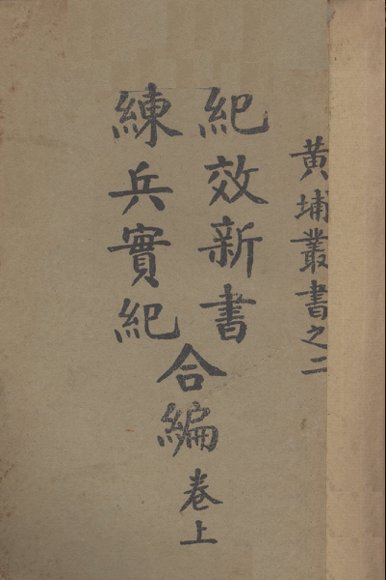 黄埔叢書之二
紀效新書
練兵實紀
合編
卷上